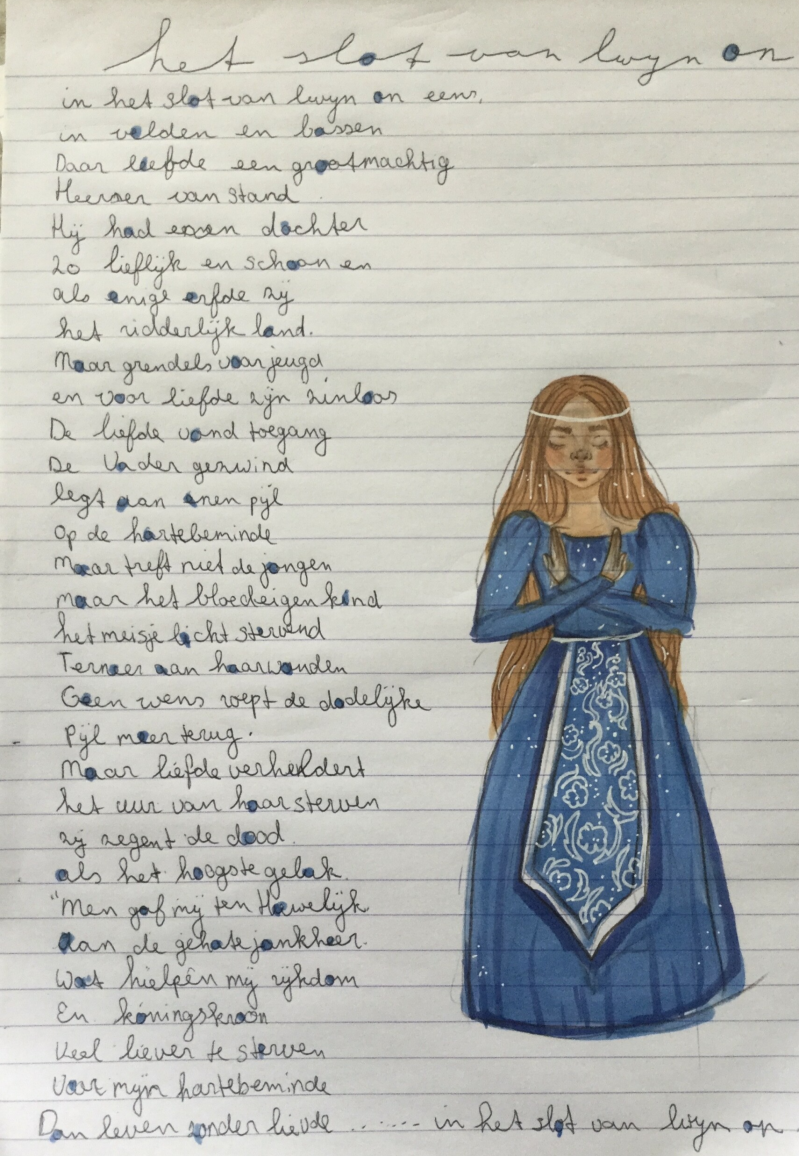 het slot van lwyn on
in het slot van lwyn on eens,
in velden en bossen
Daar leefde een grootmachtig
Heerser van stand
Hij had eeen dochter
zo lieflijk en schoon en
als enige erfde zij
het ridderlijk land.
Maar grendels voor jeugd
en voor liefde zijn zinloos
De liefde vond toegang
De Vader gezwind
legt aan enen pijl
Op de hartebeminde
Maar treft niet de jongen
maar het bloedeigen kind
het meisje licht stervend
Terneer aan haar wonden
Geen wens roept de dodelijke
Pijl meer terug.
Maar liefde verheldert
het uur van haar sterven
zij zegent de dood
als het hoogste geluk.
"Men gaf mij ten Huwelijk
aan de gehate jonkheer.
Wat hielpen mij rijkdom
En koningskroon
Veel liever te sterven
Voor mijn hartebeminde
Dan leven zonder lievde ....... in het slot van lwyn on